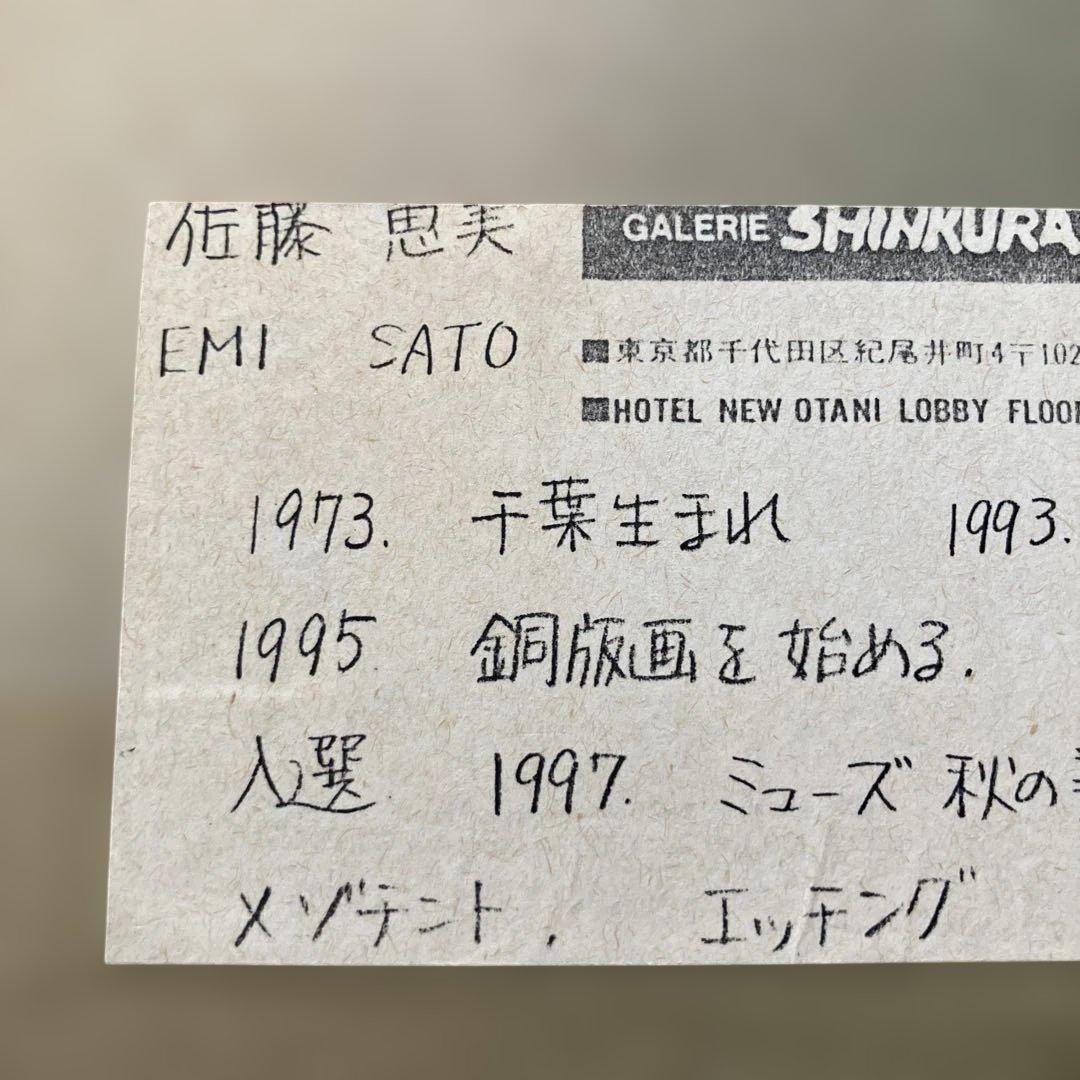 佐藤 恵美
GALERIE SHINKURA
EMI SATO
■東京都千代田区紀尾井町4〒102
■HOTEL NEW OTANI LOBBY FLOOR
1973. 千葉生まれ 1993.
1995 銅版画を始める.
入選 1997. ミューズ 秋の
メゾチント. エッチング